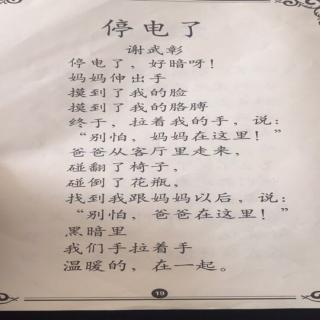 停电了
谢武彰
停电了，好暗呀！
妈妈伸出手
摸到了我的脸
摸到了我的胳膊
终于，拉着我的手，说：
“别怕，妈妈在这里！”
爸爸从客厅里走来，
碰翻了椅子，
碰倒了花瓶，
找到我跟妈妈以后，说：
“别怕，爸爸在这里！”
黑暗里
我们手拉着手
温暖的，在一起。
19